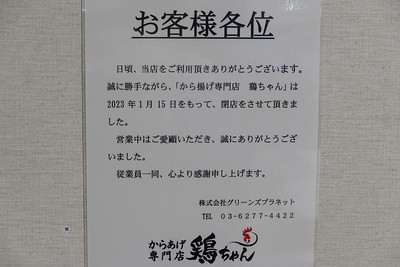 お客様各位
日頃、当店をご利用頂きありがとうございます。
誠に勝手ながら、「から揚げ専門店　鶏ちゃん」は
2023年1月15日をもって、閉店をさせて頂きま
した。
営業中はご愛顧いただき、誠にありがとうござ
いました。
従業員一同、心より感謝申し上げます。
株式会社グリーンズプラネット
TEL　03-6277-4422
からあげ
専門店 鶏ちゃん